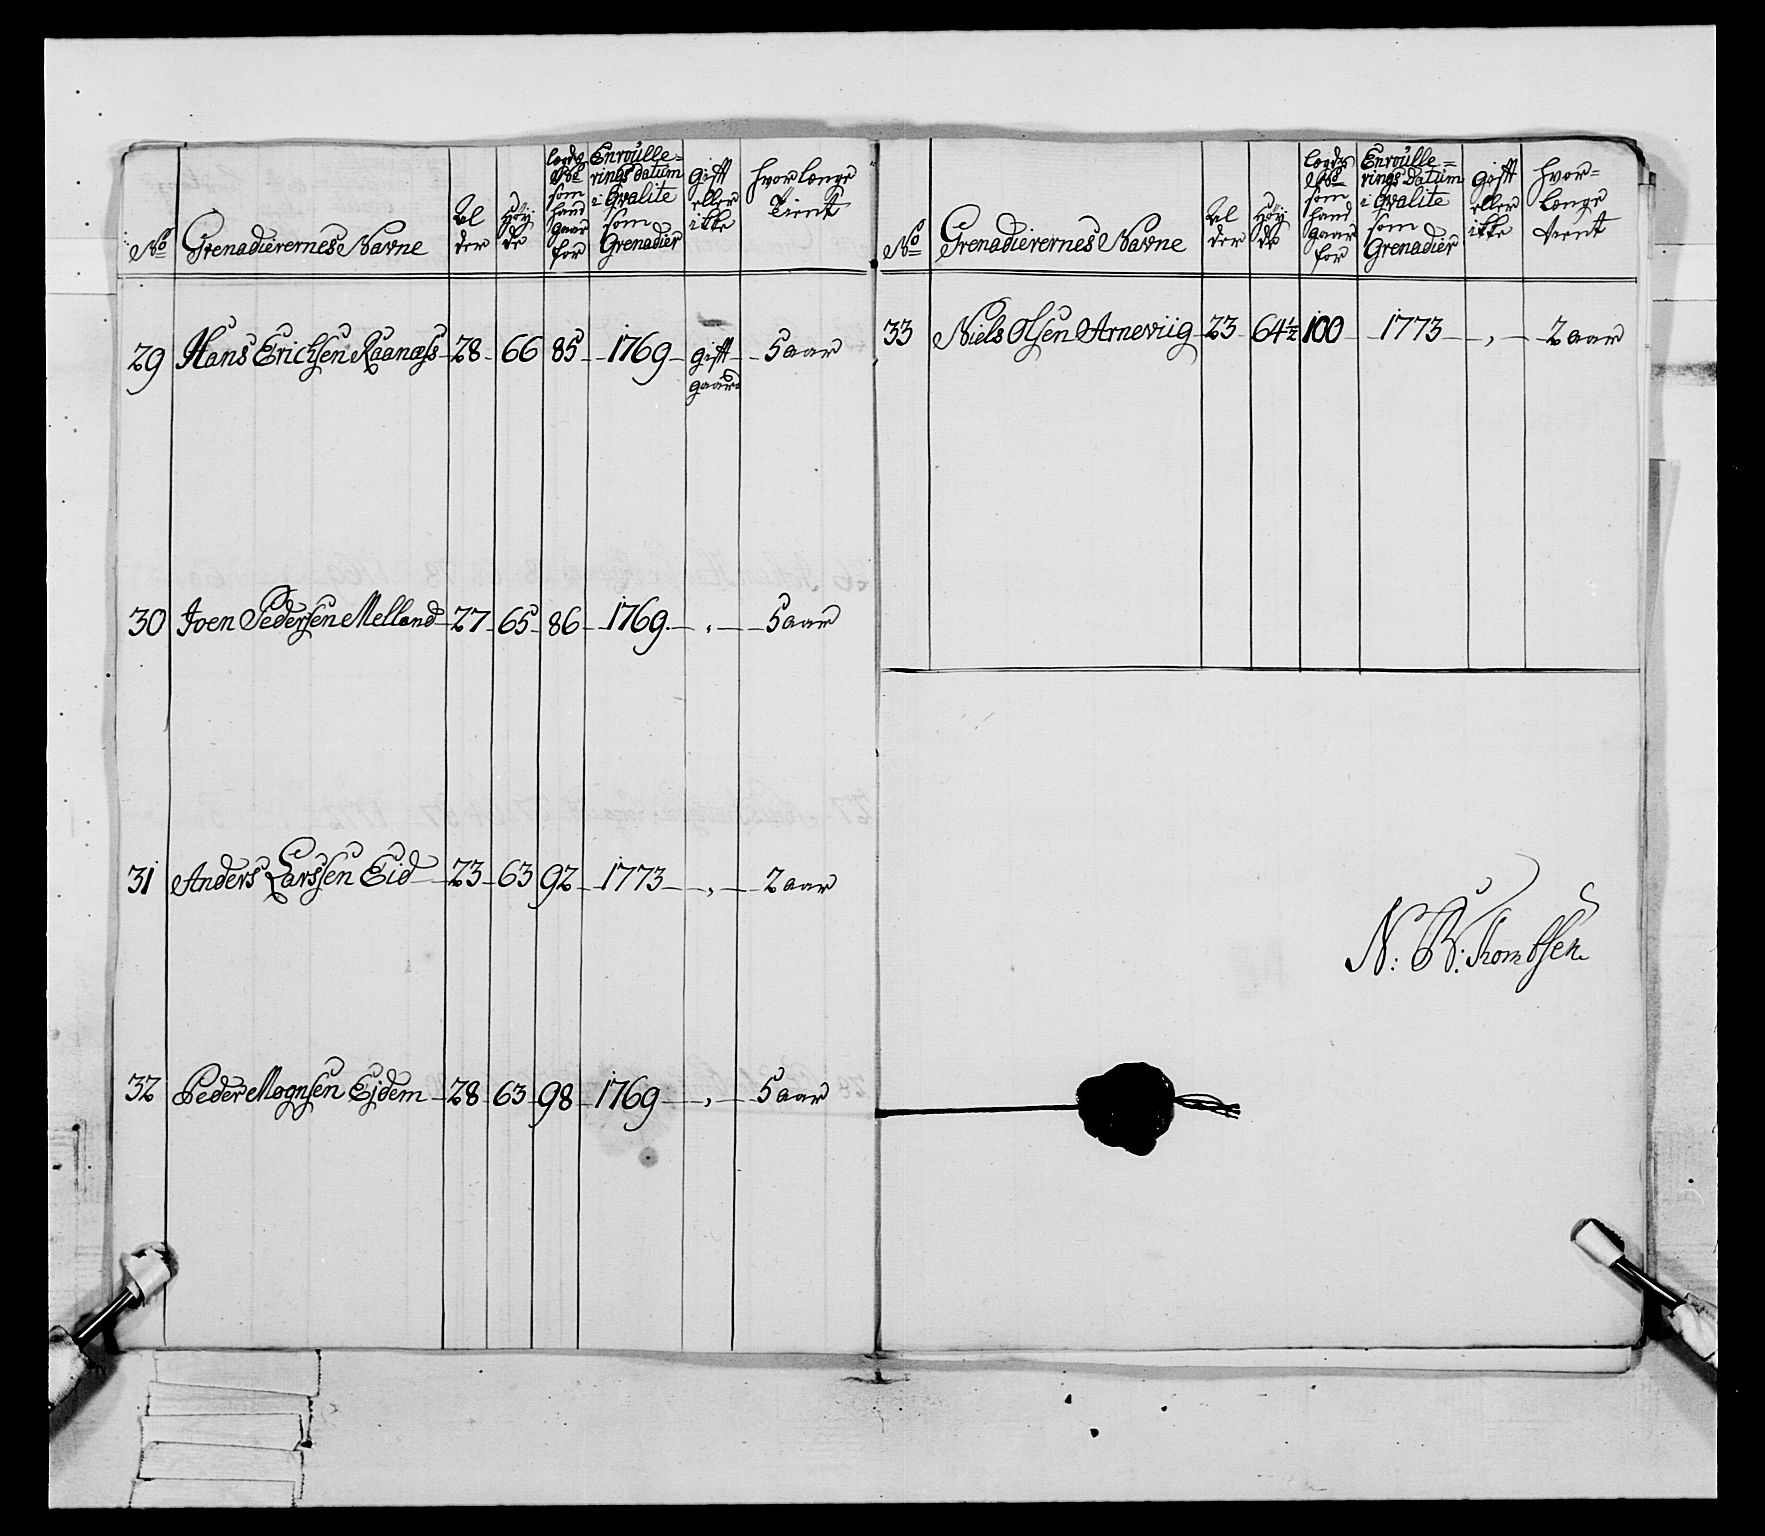 No Grenadierernes Navne Al der Høy de Lægds No som hand gaar for Enroulle= rings datum i Qvalite som Grenadier gift eller ikke hvorlænge Tient
29 Hans Erichsen Raanæss 28 66 85 1769 gift gaard 5 aar
30 Joen Pedersen Melland 27 65 86 1769 „ 5 aar
31 Anders Larssen Eid 23 63 92 1773 „ 2 aar
32 Peder Mognsen Ejdem 28 63 98 1769 „ 5 aar
No Grenadierernes Navne Al der Høy de Lægds No som hand gaar for Enroulle= rings Datum i Qvalite som Grenadier gift eller ikke hvor= længe tient
33 Niels Olsen Arneviig 23 64½ 100 1773 „ 2 aar
N: B: Thombsen